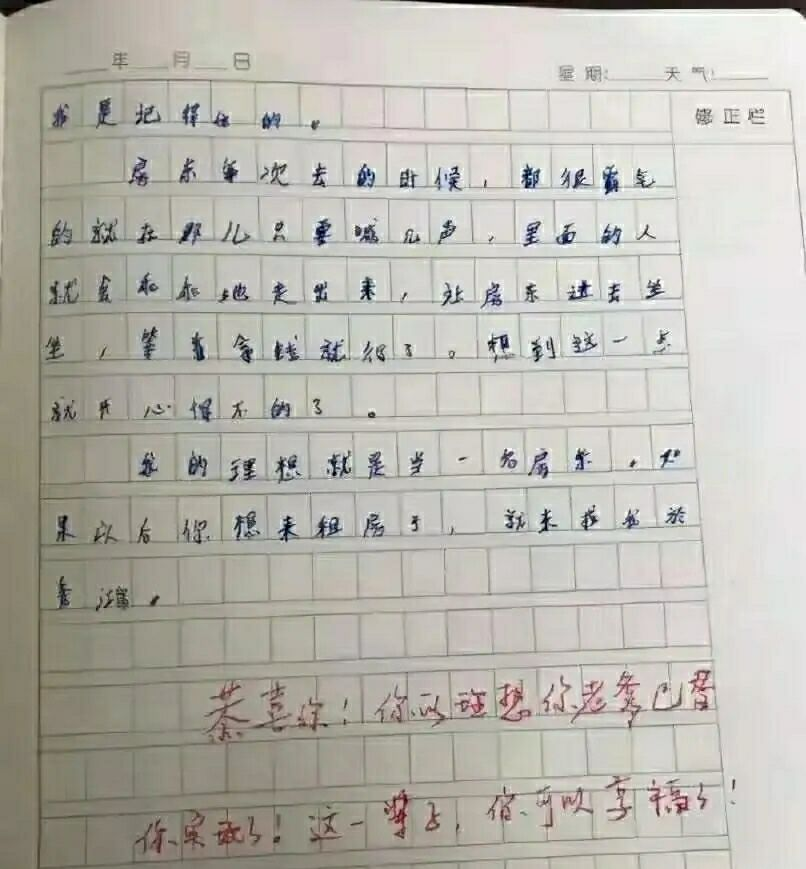 年 月 日
星期: 天气:
修正栏
我是记得住的。
房东每次去的时候，都很霸气
的就在那儿只要喊几声，里面的人
就会乖乖地走出来，让房东进去坐
坐，等着拿钱就得了。想到这一点
就开心得不的了。
我的理想就是当一名房东。如
果以后你想来租房子，就来找
恭喜你！你的理想你老爹已替
你实现了！这一辈子，你可以享福了！